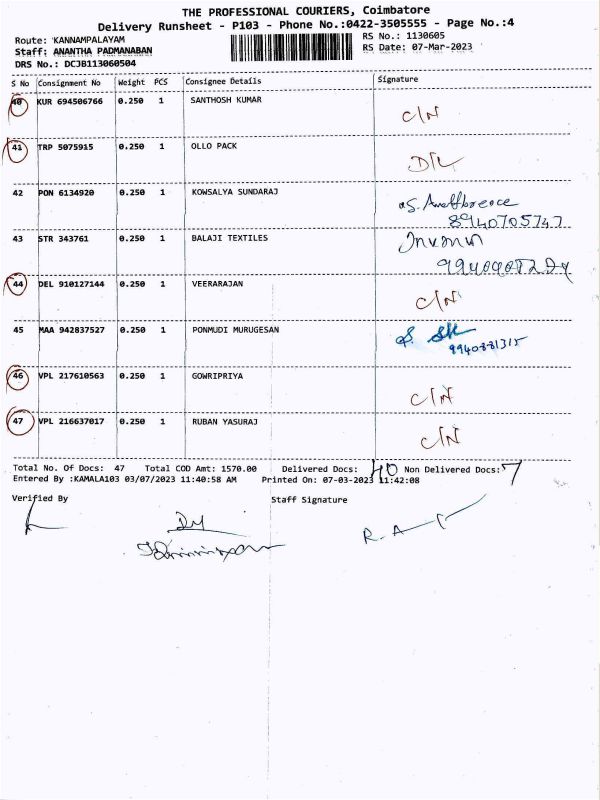 THE PROFESSIONAL COURIERS, Coimbatore
Delivery Runsheet - P103 - Phone No.:0422-3505555 - Page No.:4
Route: KANNAMPALAYAM RS No.: 1130605
Staff: ANANTHA PADMANABAN RS Date: 07-Mar-2023
DRS No.: DCJB113060504
S No Consignment No Weight PCS Consignee Details Signature
40 KUR 694506766 0.250 1 SANTHOSH KUMAR C/N
41 TRP 5075915 0.250 1 OLLO PACK D/L
42 PON 6134920 0.250 1 KOWSALYA SUNDARAJ
8940705747
43 STR 343761 0.250 1 BALAJI TEXTILES
44 DEL 910127144 0.250 1 VEERARAJAN C/N
45 MAA 942837527 0.250 1 PONMUDI MURUGESAN
9940881315
46 VPL 217610563 0.250 1 GOWRIPRIYA C/N
47 VPL 216637017 0.250 1 RUBAN YASURAJ C/N
Total No. Of Docs: 47 Total COD Amt: 1570.00 Delivered Docs: 40 Non Delivered Docs: 7
Entered By :KAMALA103 03/07/2023 11:40:58 AM Printed On: 07-03-2023 11:42:08
Verified By Staff Signature